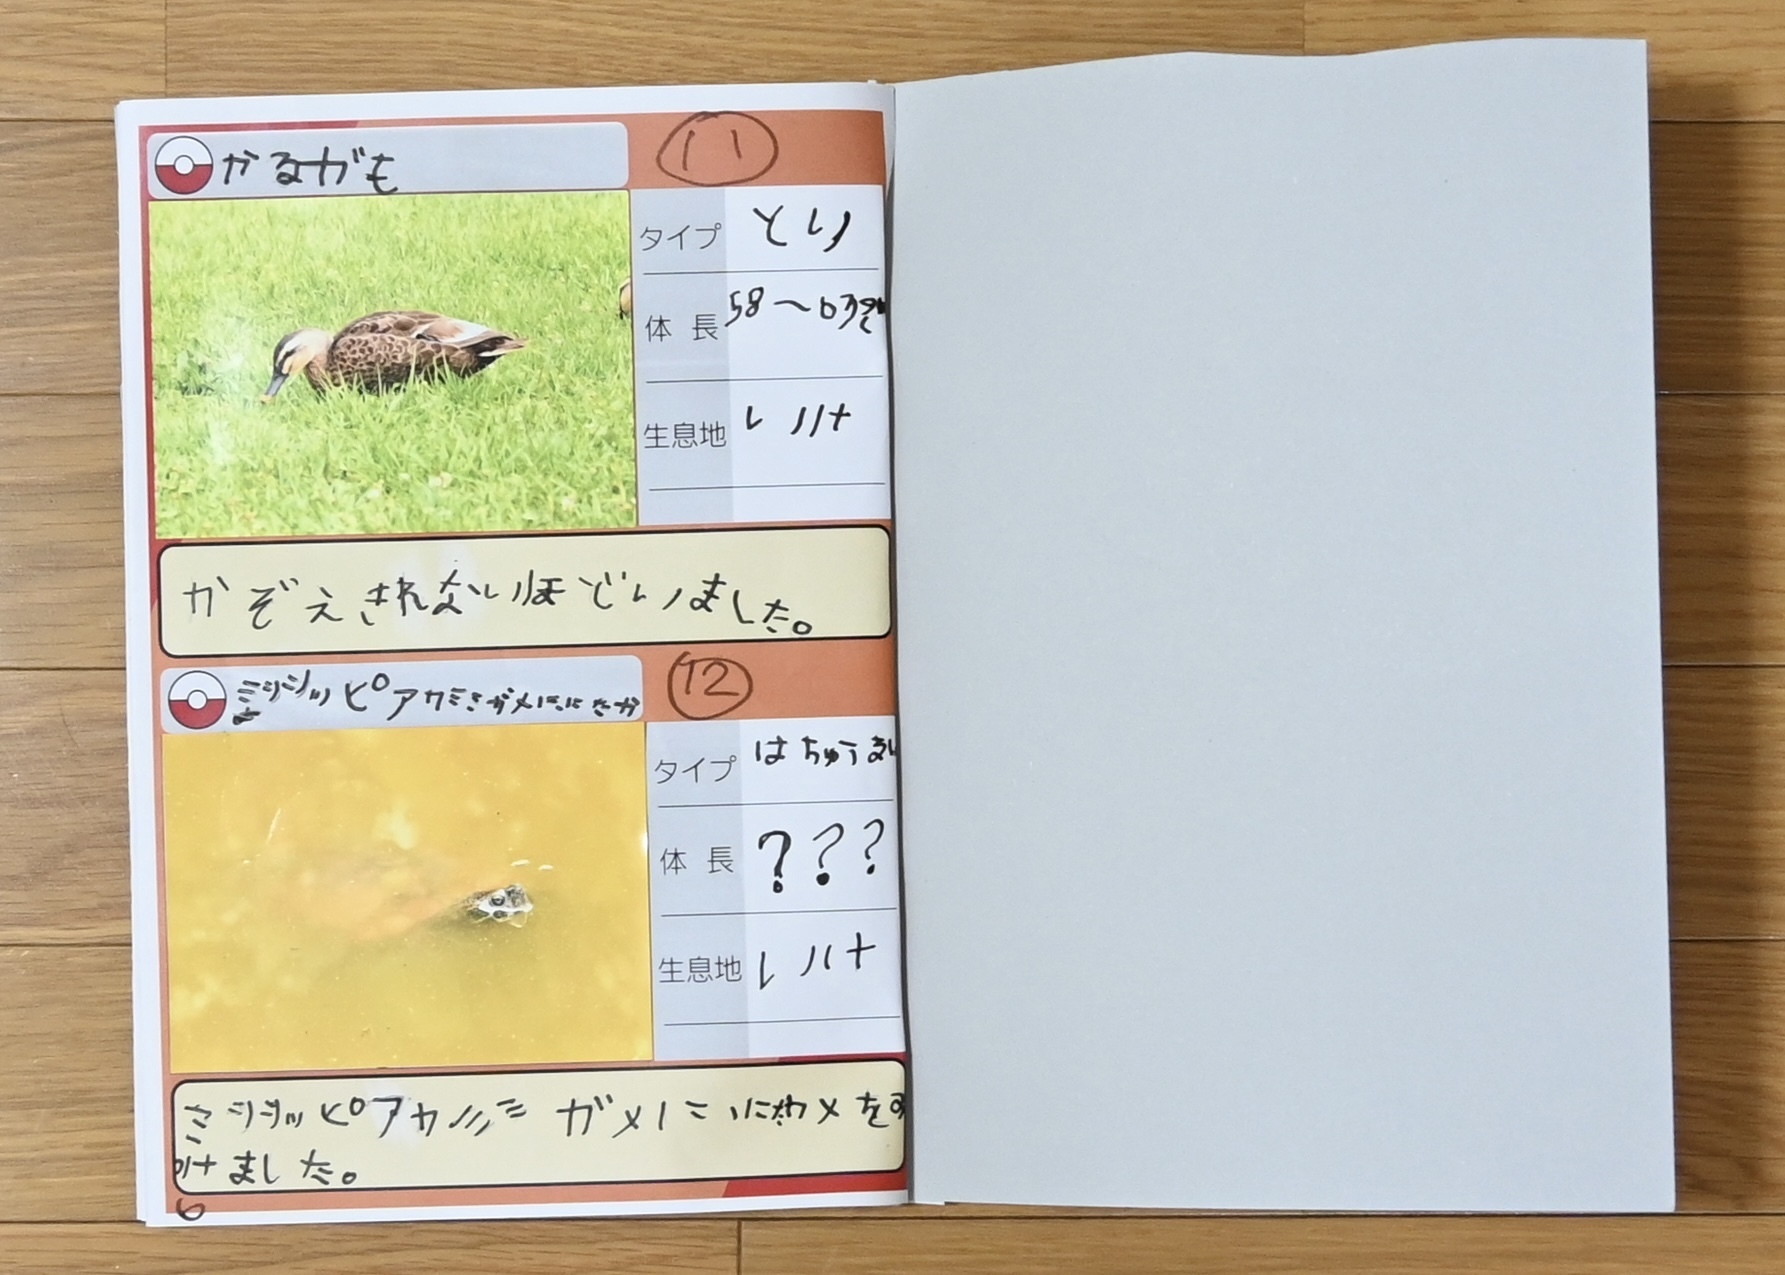 かるがも
11
タイプ とり
体長 58～63
生息地 いけ
かぞえきれないほどいました。
ミシシッピアカミミガメににたか
12
タイプ はちゅうるい
体長 ???
生息地 いけ
ミシシッピアカミミガメににたカメをみ
つけました。
6